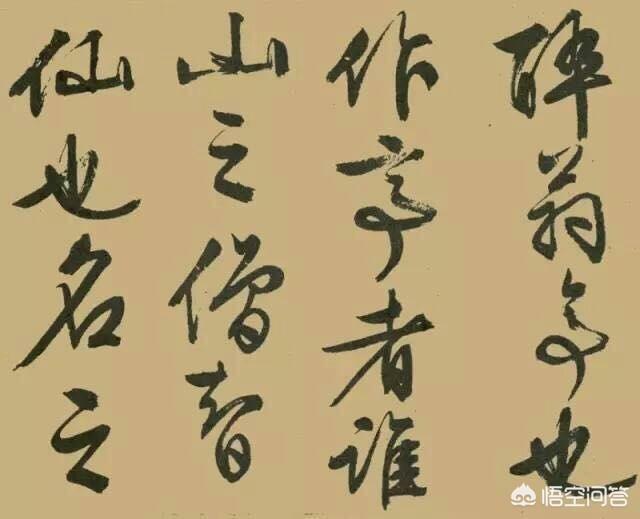 醉翁亭也
作亭者谁
山之僧智
仙也名之
悟空问答